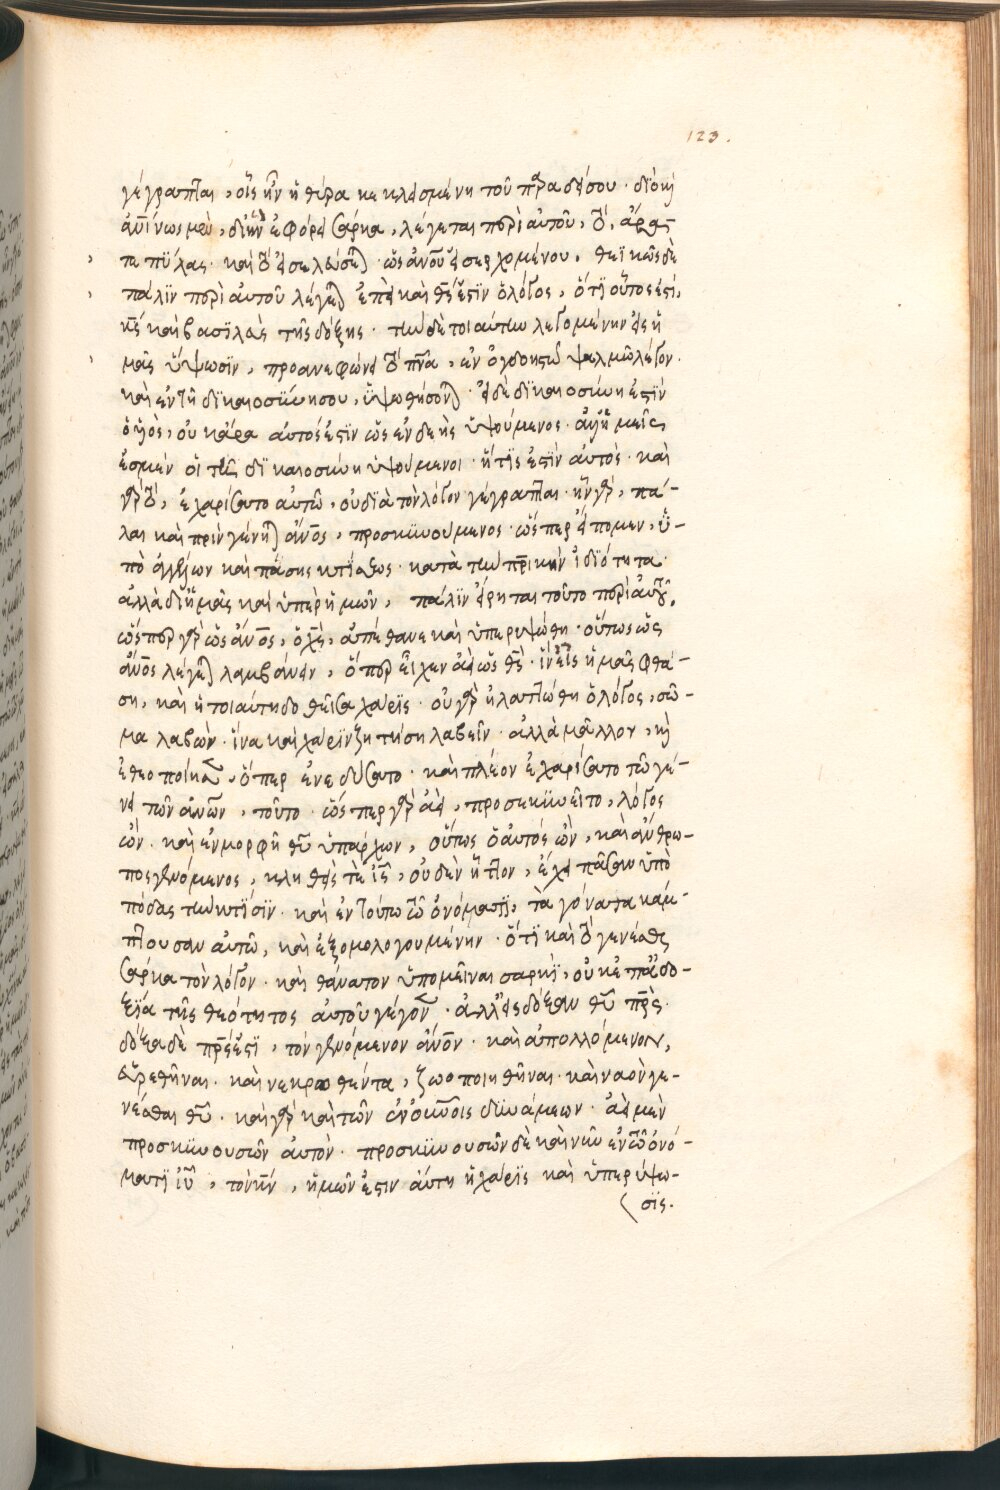 γέγραπται, οἷς ἦν ἡ θύρα κεκλεισμένη τοῦ παραδείσου· διὸ καὶ
ἀνίνως μὲν, δι' ἣν ἐφόρει σάρκα, λέγεται περὶ αὐτοῦ, τὸ, ἄρα-
τε πύλας· καὶ τὸ εἰσελεύσεται· ὡς ἀνου εἰσερχομένου. θεϊκῶς δὲ
πάλιν περὶ αὐτοῦ λέγεται ἐπεὶ καὶ θς ἐστιν ὁ λόγος, ὅτι οὗτος ἐστι,
κς καὶ βασιλεὺς τῆς δόξης· τὴν δὲ τοιαύτην λεγομένην εἰς ἡ
μᾶς ὕψωσιν, προανεφώνει τὸ πνα, ἐν ὀγδοηκοστῷ ψαλμῷ λέγον·
καὶ ἐν τῇ δικαιοσύνη σου, ὑψωθήσονται· εἰ δὲ δικαιοσύνη ἐστὶν
ὁ υἱὸς, οὐκ ἄρα αὐτός ἐστιν ὡς ἐνδεὴς ὑψούμενος· ἀλλ' ἡμεῖς
ἐσμὲν οἱ τῇ δικαιοσύνη ὑψούμενοι· ἥτις ἐστὶν αὐτὸς· καὶ
γὰρ τὸ, ἐχαρίσατο αὐτῷ, οὐ διὰ τὸν λόγον γέγραπται· ἦν γὰρ, πά-
λαι καὶ πρὶν γένηται ἄνος, προσκυνούμενος· ὥσπερ εἴπομεν, ὑ-
πὸ ἀγγέλων καὶ πάσης κτίσεως· κατὰ τὴν πρικὴν ἰδιότητα·
ἀλλὰ δι' ἡμᾶς καὶ ὑπὲρ ἡμῶν, πάλιν εἴρηται τοῦτο περὶ αὐτοῦ.
ὥσπερ γὰρ ὡς ἄνος, ὁ χς, ἀπέθανε καὶ ὑπερυψώθη· οὕτως ὡς
ἄνος λέγεται λαμβάνειν, ὅπερ εἶχεν ἀεὶ ὡς θς· ἵν' εἰς ἡμᾶς φθά-
ση, καὶ ἡ τοιαύτη δοθεῖσα χάρις· οὐ γὰρ ἠλαττώθη ὁ λόγος, σῶ-
μα λαβὼν· ἵνα καὶ χάριν ζητήση λαβεῖν· ἀλλὰ μᾶλλον, καὶ
ἐθεοποίησεν, ὅπερ ἐνεδύσατο· καὶ πλέον ἐχαρίσατο τῷ γέ-
νει τῶν ἀνων, τοῦτο· ὥσπερ γὰρ ἀεὶ, προσεκυνεῖτο, λόγος
ὢν· καὶ ἐν μορφῇ θυ ὑπάρχων, οὕτως ὁ αὐτὸς ὢν, καὶ ἄνθρω-
πος γενόμενος, κληθεὶς τὲ ις, οὐδὲν ἧττον, ἔχει πᾶσαν ὑπὸ
πόδας τὴν κτίσιν· καὶ ἐν τούτω τῷ ὀνόματι, τὰ γόνατα κάμ-
πτουσαν αὐτῷ, καὶ ἐξομολογουμένην· ὅτι καὶ τὸ γενέσθαι
σάρκα τὸν λόγον· καὶ θάνατον ὑπομεῖναι σαρκὶ, οὐκ ἐπ' ἀδο-
ξία τῆς θεότητος αὐτοῦ γέγονεν· ἀλλ' εἰς δόξαν θυ πρς·
δόξα δὲ πρς ἐστὶ, τὸν γενόμενον ἄνον· καὶ ἀπολλόμενον,
εὑρεθῆναι· καὶ νεκρωθέντα, ζωοποιηθῆναι· καὶ ναὸν γε-
νέσθαι θυ· καὶ γὰρ καὶ τῶν ἐν οὐνοῖς δυνάμεων· ἀεὶ μὲν
προσκυνουσῶν αὐτὸν· προσκυνουσῶν δὲ καὶ νῦν ἐν τῷ ὀνό-
ματι ιυ, τὸν κν, ἡμῶν ἐστιν αὕτη ἡ χάρις καὶ ὑπερύψω-
σις.
123.